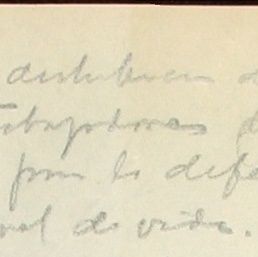 distribucion d
trabajadores d
para la defe
nel de vida.